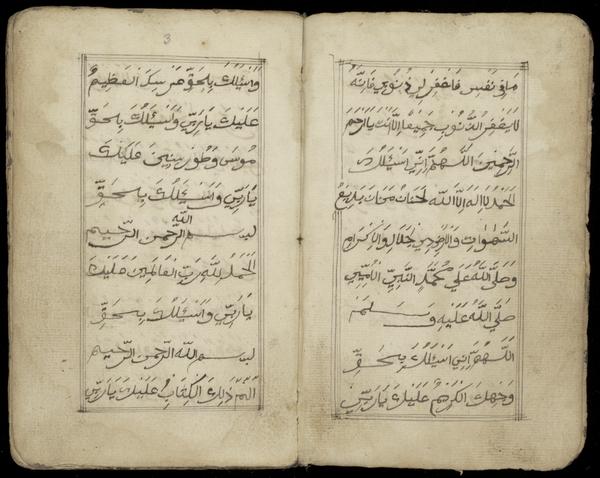 مَا فِي نَفْسِي فَاغْفِرْ لِي ذُنُوبِي فَإِنَّهُ
لَا يَغْفِرُ الذُّنُوبَ جَمِيعًا إِلَّا أَنْتَ يَا أَرْحَمَ
الرَّحِمِينَ اللَّهُمَّ إِنِّي أَسْئَلُكَ
الحَمْدُ لَا إِلَهَ إِلَّا اللَّه الحَنَّانُ مَنَّانُ بَدِيعُ
السَّمٰوَاتِ وَالْأَرْضِ ذِي الجَلَالِ وَالْإِكْرَامِ
وَصَلَّى اللَّهُ عَلَى مُحَمَّدٍ النَّبِيِّ الْأُمِّيِّ
صَلَّى اللَّهُ عَلَيْهِ وَسَلَّمَ
اللَّهُمَّ إِنِّي أَسْئَلُكَ بِحَقِّ
وَجْهِكَ الْكَرِيمِ عَلَيْكَ يَا رَبِّ
3
وَأَسْئَلُكَ بِحَقِّ عَرْشِكَ الْعَظِيمِ
عَلَيْكَ يَا رَبِّ وَأَسْئَلُكَ بِحَقِّ
مُوسَى وَطُورِ سِنِينَ عَلَيْكَ
يَا رَبِّ وَأَسْئَلُكَ بِحَقِّ
بسم الله الرحمن الرحيم
الْحَمْدُ لِلَّهِ رَبِّ الْعَالَمِينَ عَلَيْكَ
يَا رَبِّ وَأَسْئَلُكَ بِحَقِّ
بسم الله الرحمن الرحيم
الم ذَلِكَ الْكِتَابُ عَلَيْكَ يَا رَبِّ